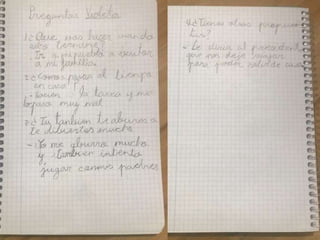 Preguntas Violeta
1.¿Que vas hacer cuando
esto termine?
Ir a mi pueblo a visitar
a mi familia.
2.¿Como pasas el tiempo
en casa?
la tarea y me
lo paso muy mal
3.¿Tu tambien te aburres o
te diviertes mucho
- Yo me aburro mucho
y tambien intento
jugar con mis padres
4.¿Tienes alguna pregunta
- Le diria al president
que nos deje
para poder salir de casa